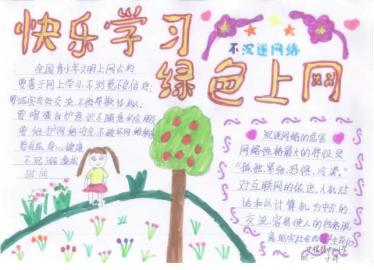 快乐学习
不沉迷网络
绿色上网
全国青少年文明上网公约
要善于网上学习 不浏览不良信息
要诚实友好交流 不侮辱欺诈他人
要增强自护意识 不随意约会网友
要维护网络安全 不破坏网络秩序
要有益身心健康
不沉溺虚拟
时间
沉迷网络的危害
网络性格最大的特征是
“孤独、紧张、恐惧、冷漠”
对互联网的依恋、人机对
话和以计算机为中介的
交流 容易使人的性格